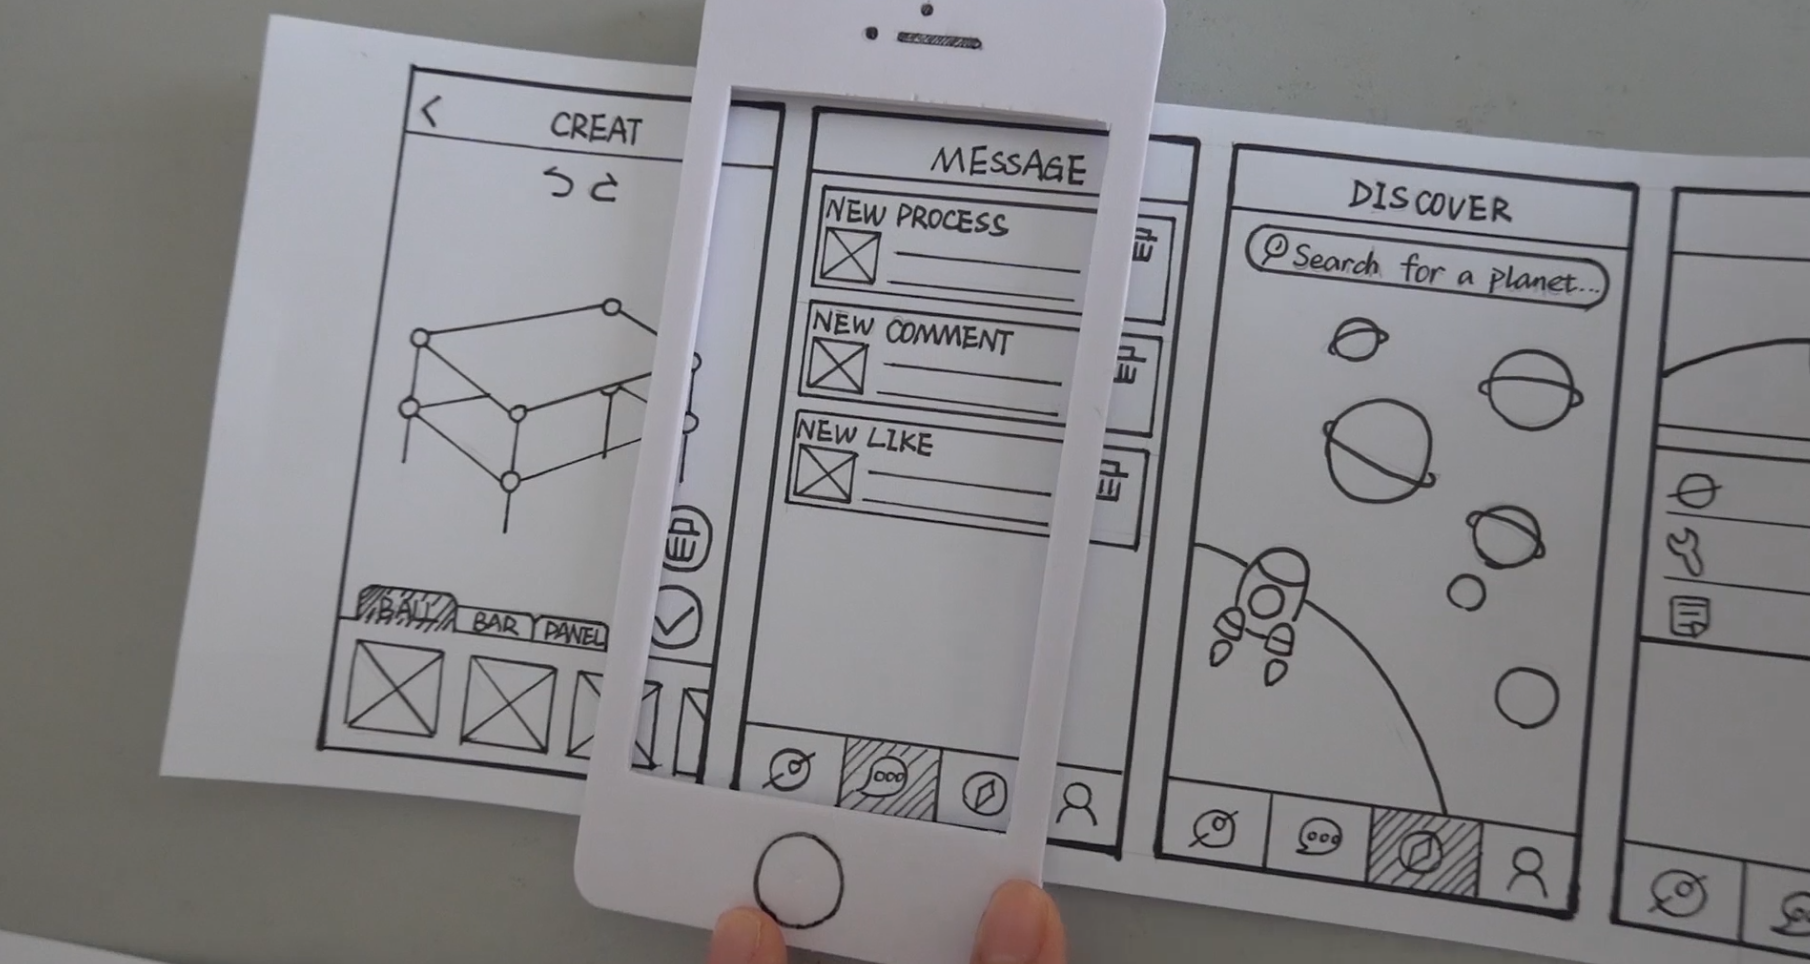 CREAT
BALL
BAR
PANEL
MESSAGE
NEW PROCESS
NEW COMMENT
NEW LIKE
DISCOVER
Search for a planet...